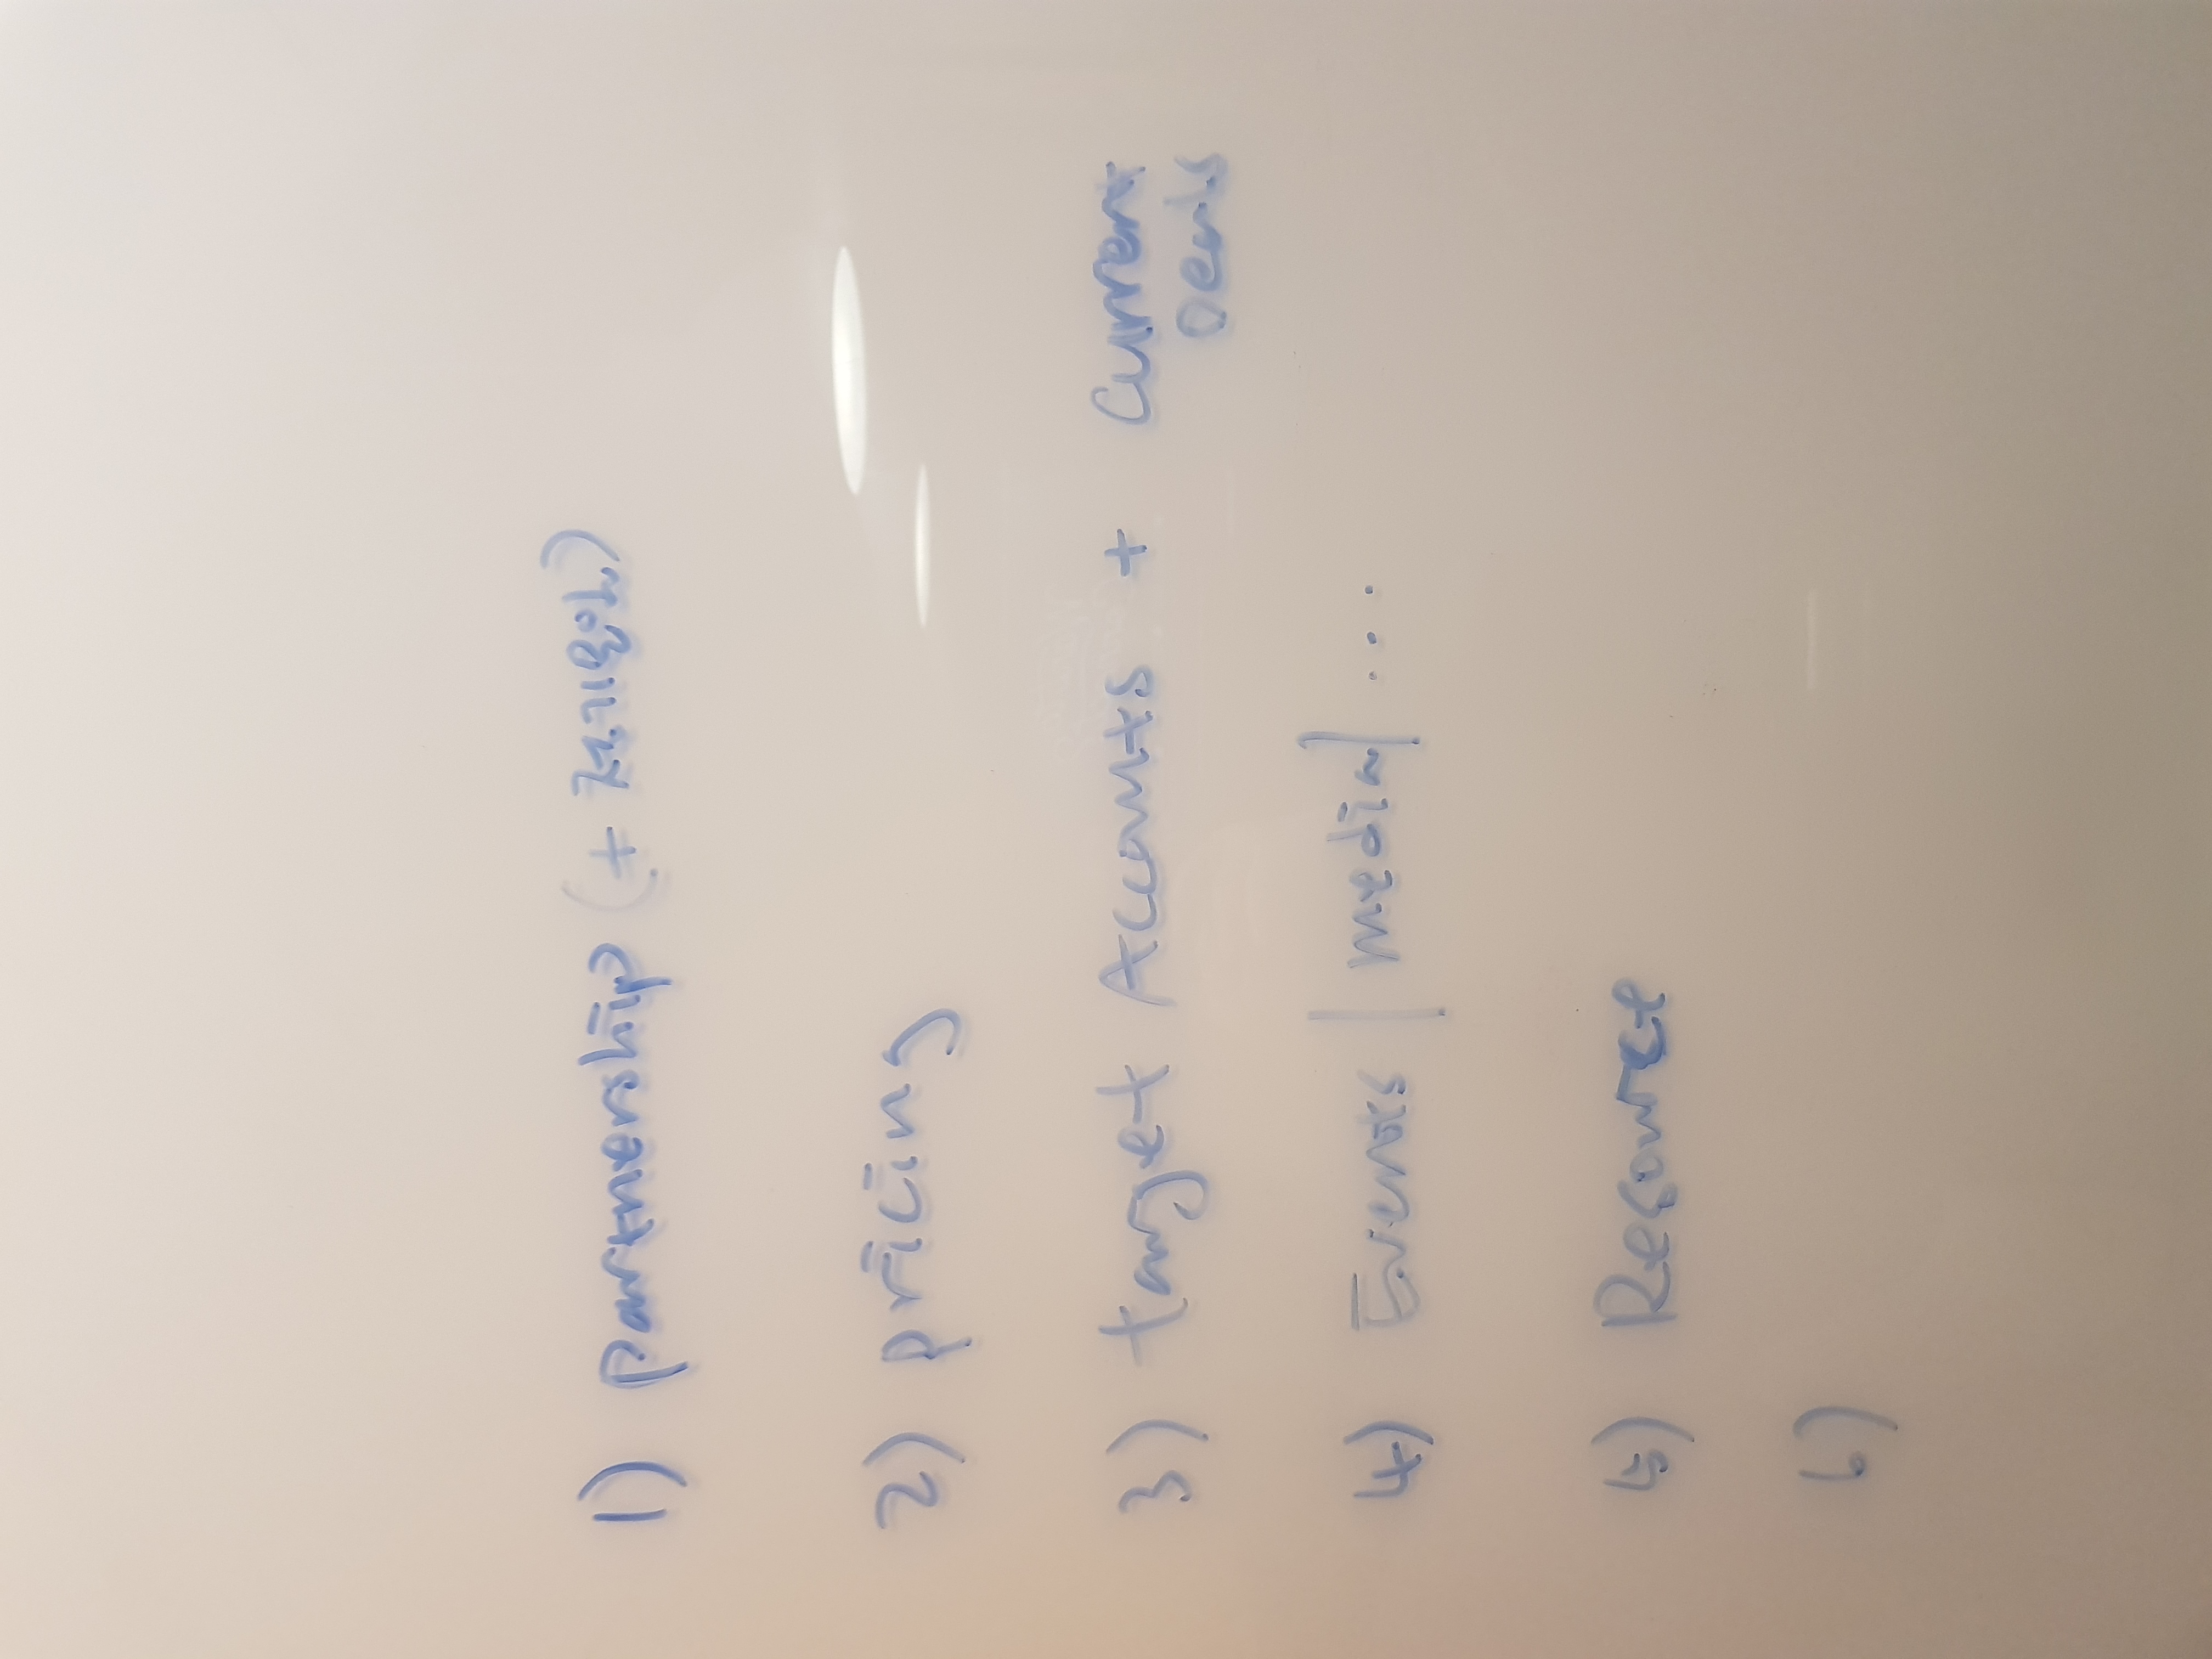 1) partnership (+
2) pricing
3) target Accounts + Current
Deals
4) Events | median | ...
5) Resource
6)